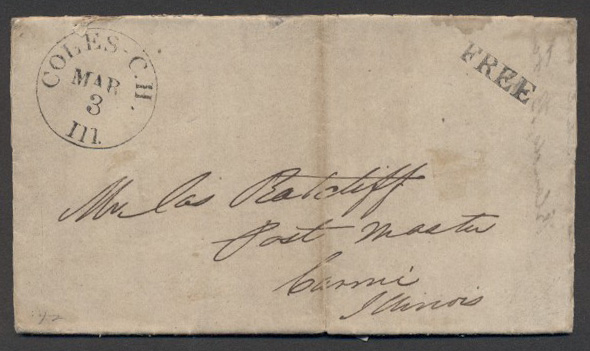 COLES-C.H.
MAR
3
Ill.
FREE
Mr Jas Ratcliff
Post Master
Carmi
Illinois